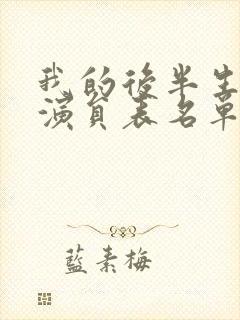 我的後半生
演員表名單
藍素梅